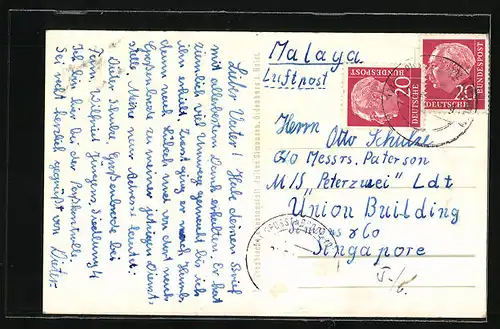 Lieber Vater! Habe deinen Brief
mit allerbestem Dank erhalten. Er hat
ziemlich viel Umweg gemacht bis ich
ihn erhielt. Zuerst ging er nach Hamb.
dann nach Lübeck und von dort nach
Großenbrode zu meiner jetzigen Dienst-
stelle. Meine neue Adresse lautet:
Dieter Schulze, Großenbrode bei
Fam. Wilfried Jungens, Siedlung 4
Ich bin hier bei der Paßkontrolle.
Sei recht herzlich gegrüßt von Dieter
Malaya
Luftpost
20
DEUTSCHE
BUNDESPOST
20
DEUTSCHE
BUNDESPOST
Herrn Otto Schulze
c/o Messrs. Paterson
M/S "Peterzwei" Ldt
"Union Building
Simons & Co
Singapore